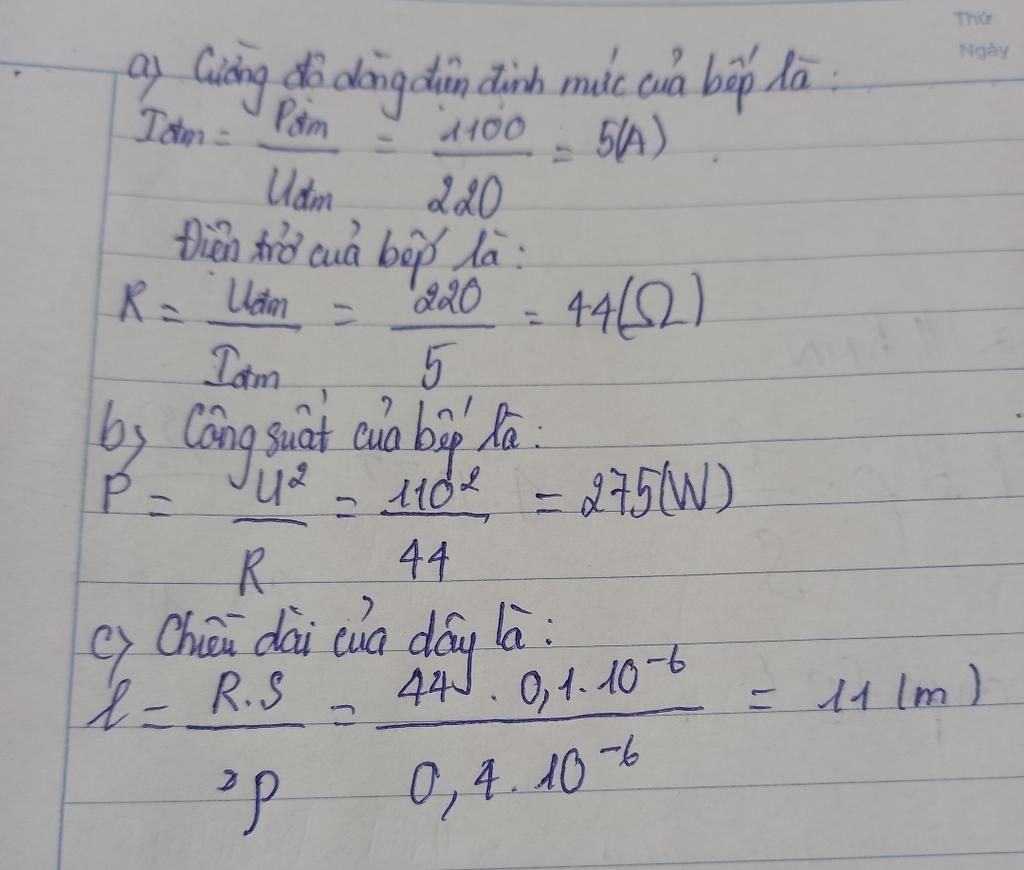 Thứ
Ngày
a) Cường độ dòng điện định mức của bếp là:
Iđm = Pđm / Uđm = 1100 / 220 = 5(A)
Điện trở của bếp là:
R = Uđm / Iđm = 220 / 5 = 44(Ω)
b) Công suất của bếp là:
P = U² / R = 110² / 44 = 275(W)
c) Chiều dài của dây là:
l = R.S / ρ = 44 . 0,1.10⁻⁶ / 0,4.10⁻⁶ = 11 (m)